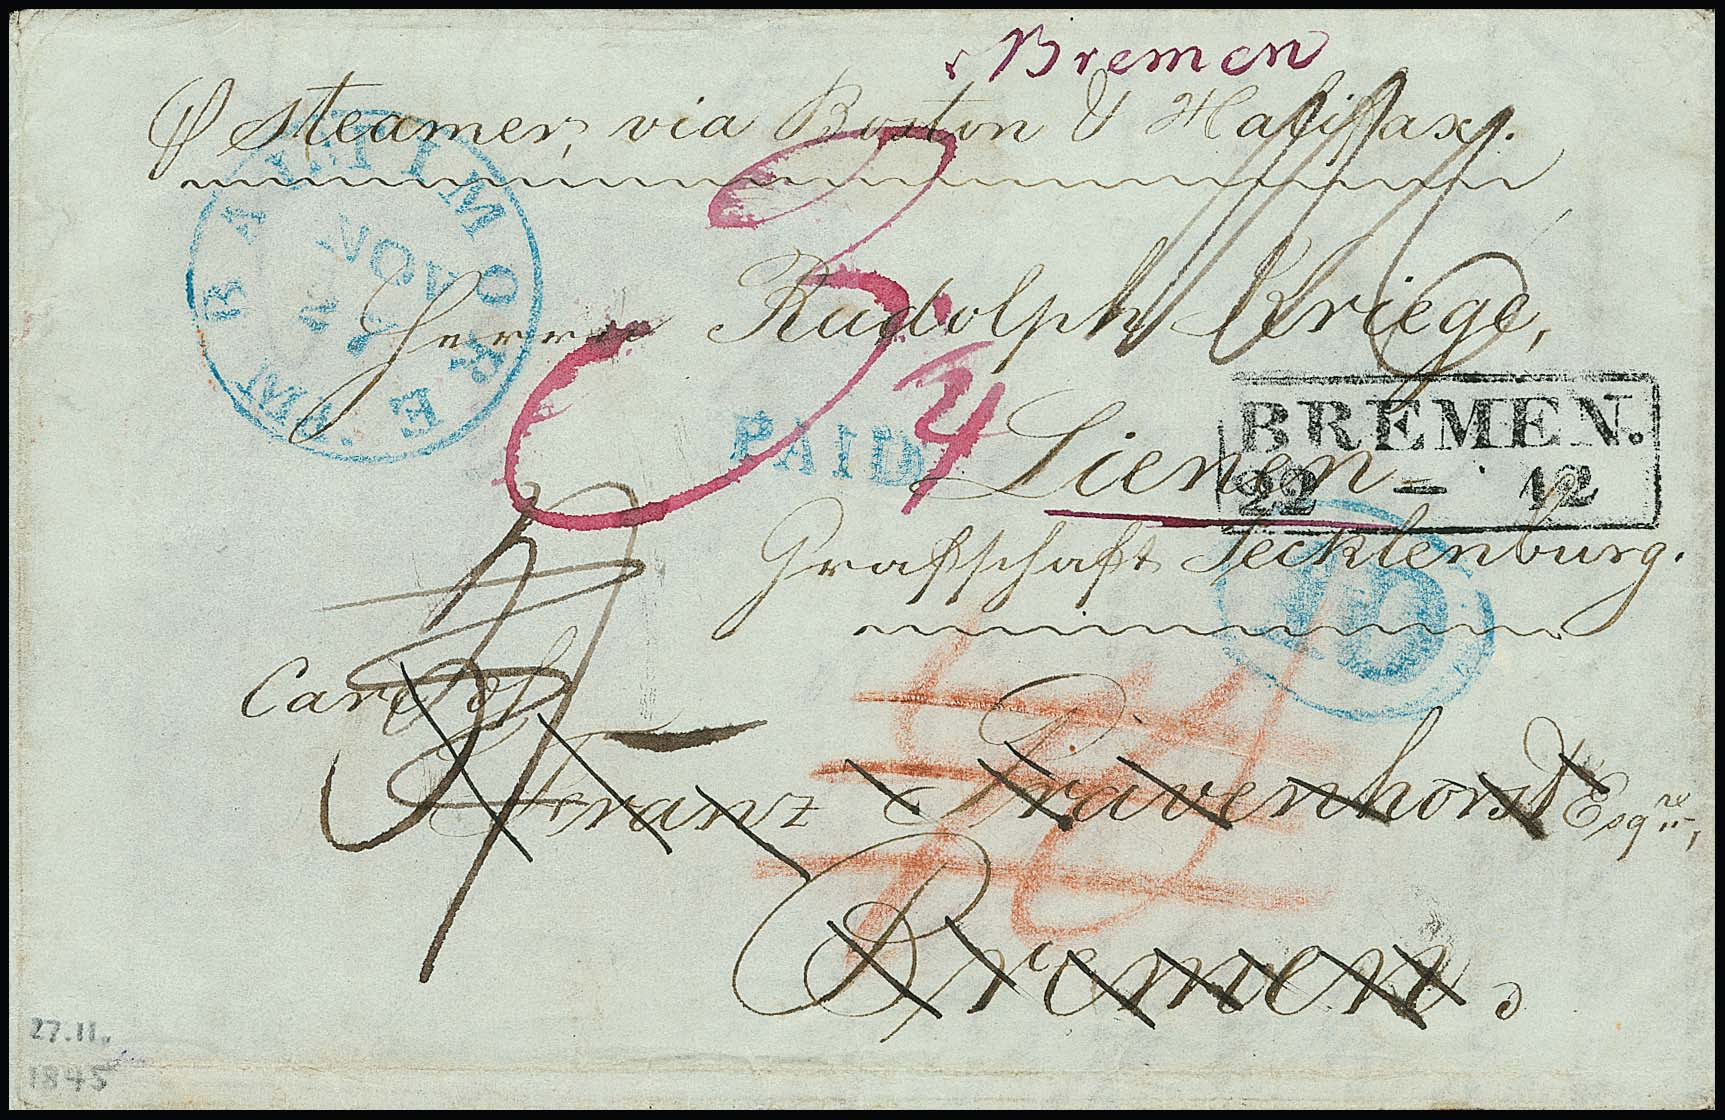 Bremen
p steamer, via Boston & Halifax.
BALTIMORE Md.
NOV
Herrn Rudolph Kriege,
PAID
3/4
Lienen
BREMEN.
22 - 12
Grafschaft Tecklenburg.
10
Care of
Franz Pävenhorst Esqre,
Bremen.
27.11.
1845